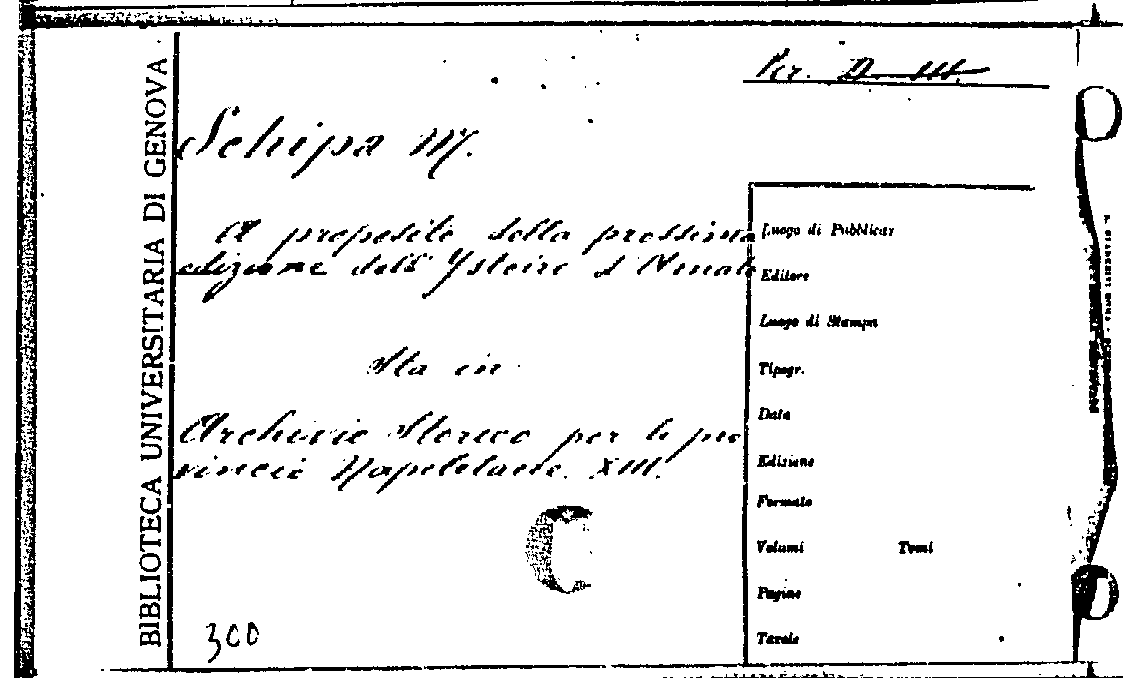 BIBLIOTECA UNIVERSITARIA DI GENOVA
Per.
Schipa M.
A proposito della prossima
edizione dell' Ystoire d'
Sta in
Archivio Storico per le pro
vincie Napoletane. XIII.
C
300
Luogo di Pubblicaz
Editore
Luogo di Stampa
Tipogr.
Data
Edizione
Formato
Volumi Tomi
Pagine
Tavole